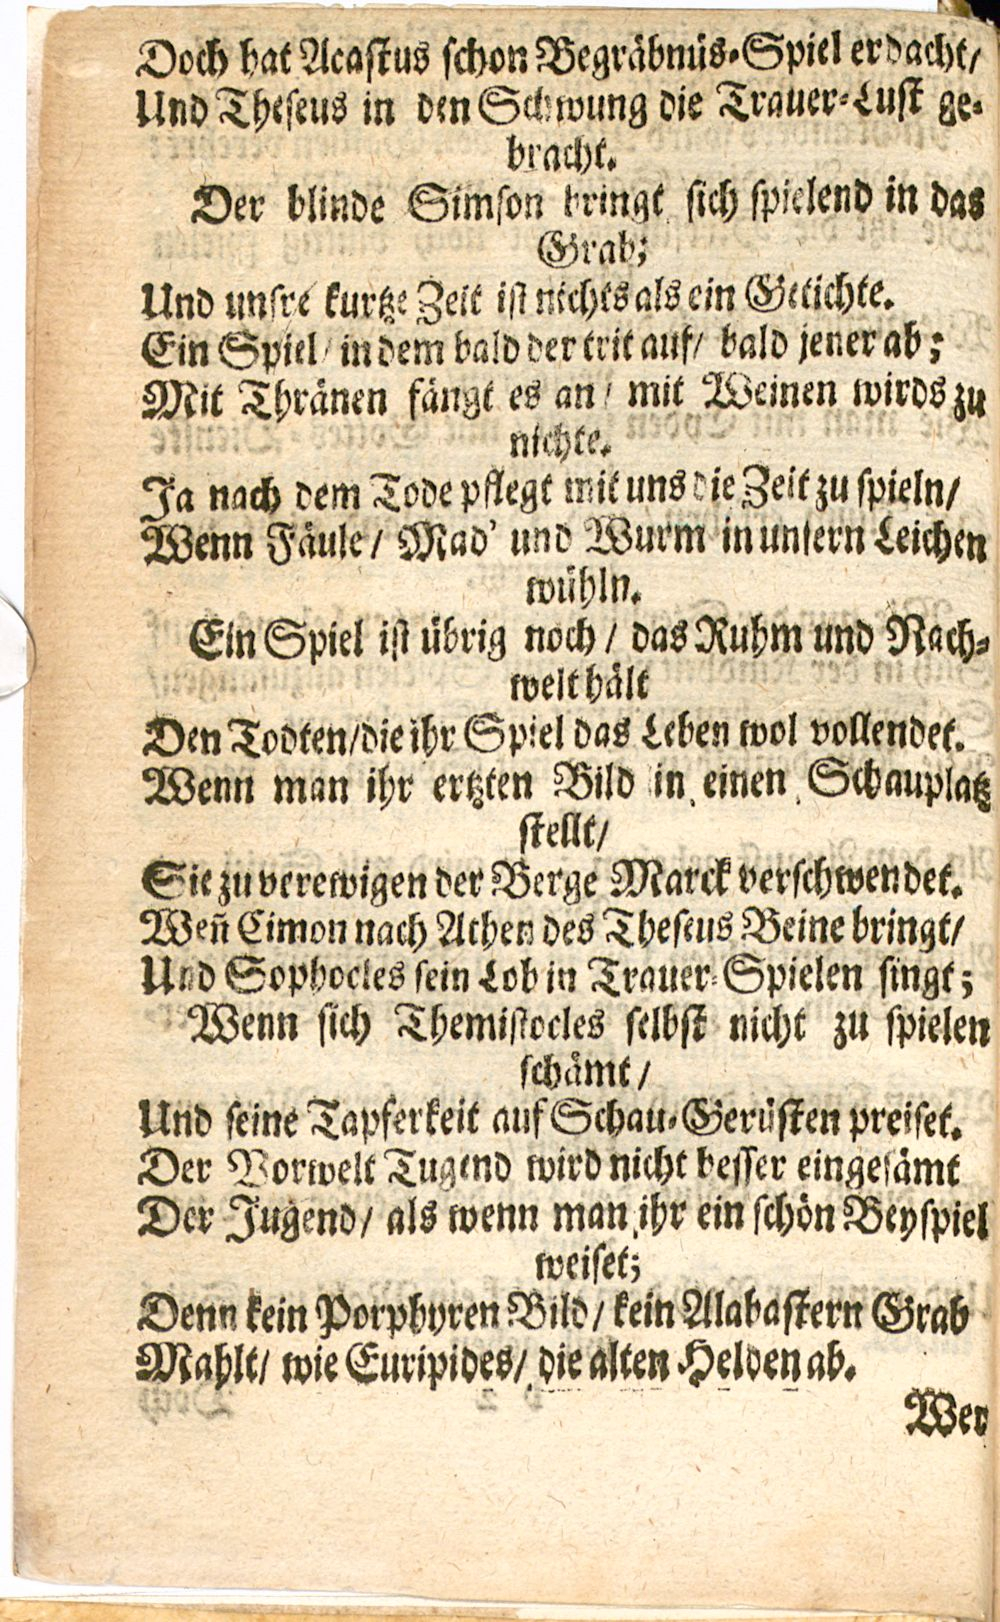 Doch hat Acastus schon Begräbnüs-Spiel erdacht/
Und Theseus in den Schwung die Trauer-Lust ge-
bracht.
Der blinde Simson bringt sich spielend in das
Grab;
Und unsre kurtze Zeit ist nichts als ein Getichte.
Ein Spiel/ in dem bald der trit auf/ bald jener ab;
Mit Thränen fängt es an/ mit Weinen wirds zu
nichte.
Ja nach dem Tode pflegt mit uns die Zeit zu spieln/
Wenn Fäule/ Mad' und Wurm in unsern Leichen
wühln.
Ein Spiel ist übrig noch/ das Ruhm und Nach-
welt hält
Den Todten/ die ihr Spiel das Leben wol vollendet.
Wenn man ihr ertzten Bild in einen Schauplatz
stellt/
Sie zu verewigen der Berge Marck verschwendet.
Weñ Cimon nach Athen des Theseus Beine bringt/
Und Sophocles sein Lob in Trauer-Spielen singt;
Wenn sich Themistocles selbst nicht zu spielen
schämt/
Und seine Tapferkeit auf Schau-Gerüsten preiset.
Der Vorwelt Tugend wird nicht besser eingesämt
Der Jugend/ als wenn man ihr ein schön Beyspiel
weiset;
Denn kein Porphyren Bild/ kein Alabastern Grab
Mahlt/ wie Euripides/ die alten Helden ab.
Wer